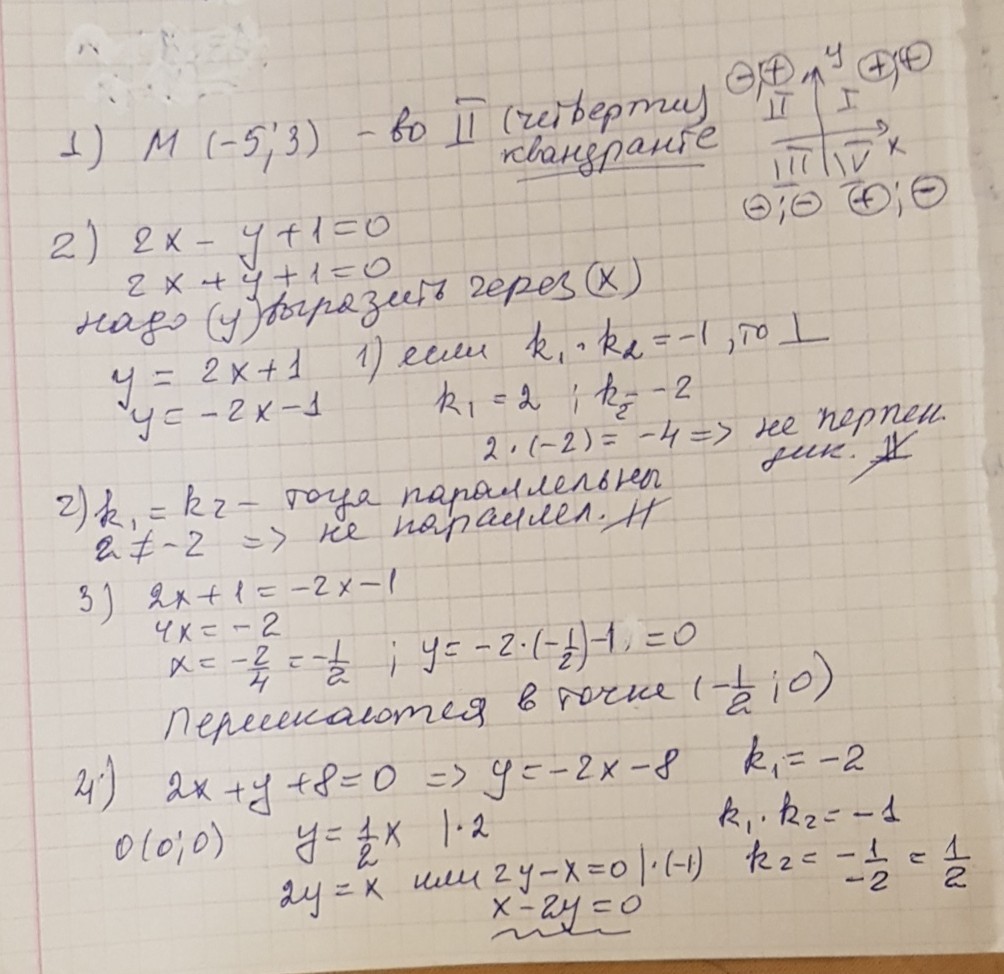 1) М (-5; 3) - во II (четверти)
квандранте
y
⊖; ⊕ ⊕; ⊕
II I
x
III IV
⊖; ⊖ ⊕; ⊖
2) 2x - y + 1 = 0
2x + y + 1 = 0
надо (y) выразить через (x)
y = 2x + 1 1) если k₁ · k₂ = -1, то ⊥
y = -2x - 1 k₁ = 2 ; k₂ = -2
2 · (-2) = -4 => не перпен.
дик.
2) k₁ = k₂ - тогда параллельны
2 ≠ -2 => не параллел. ∦
3) 2x + 1 = -2x - 1
4x = -2
x = -2/4 = -1/2 ; y = -2 · (-1/2) - 1 = 0
Пересекаются в точке (-1/2 ; 0)
4) 2x + y + 8 = 0 => y = -2x - 8 k₁ = -2
O(0; 0) y = 1/2 x | · 2 k₁ · k₂ = -1
2y = x или 2y - x = 0 | · (-1) k₂ = -1/-2 = 1/2
x - 2y = 0